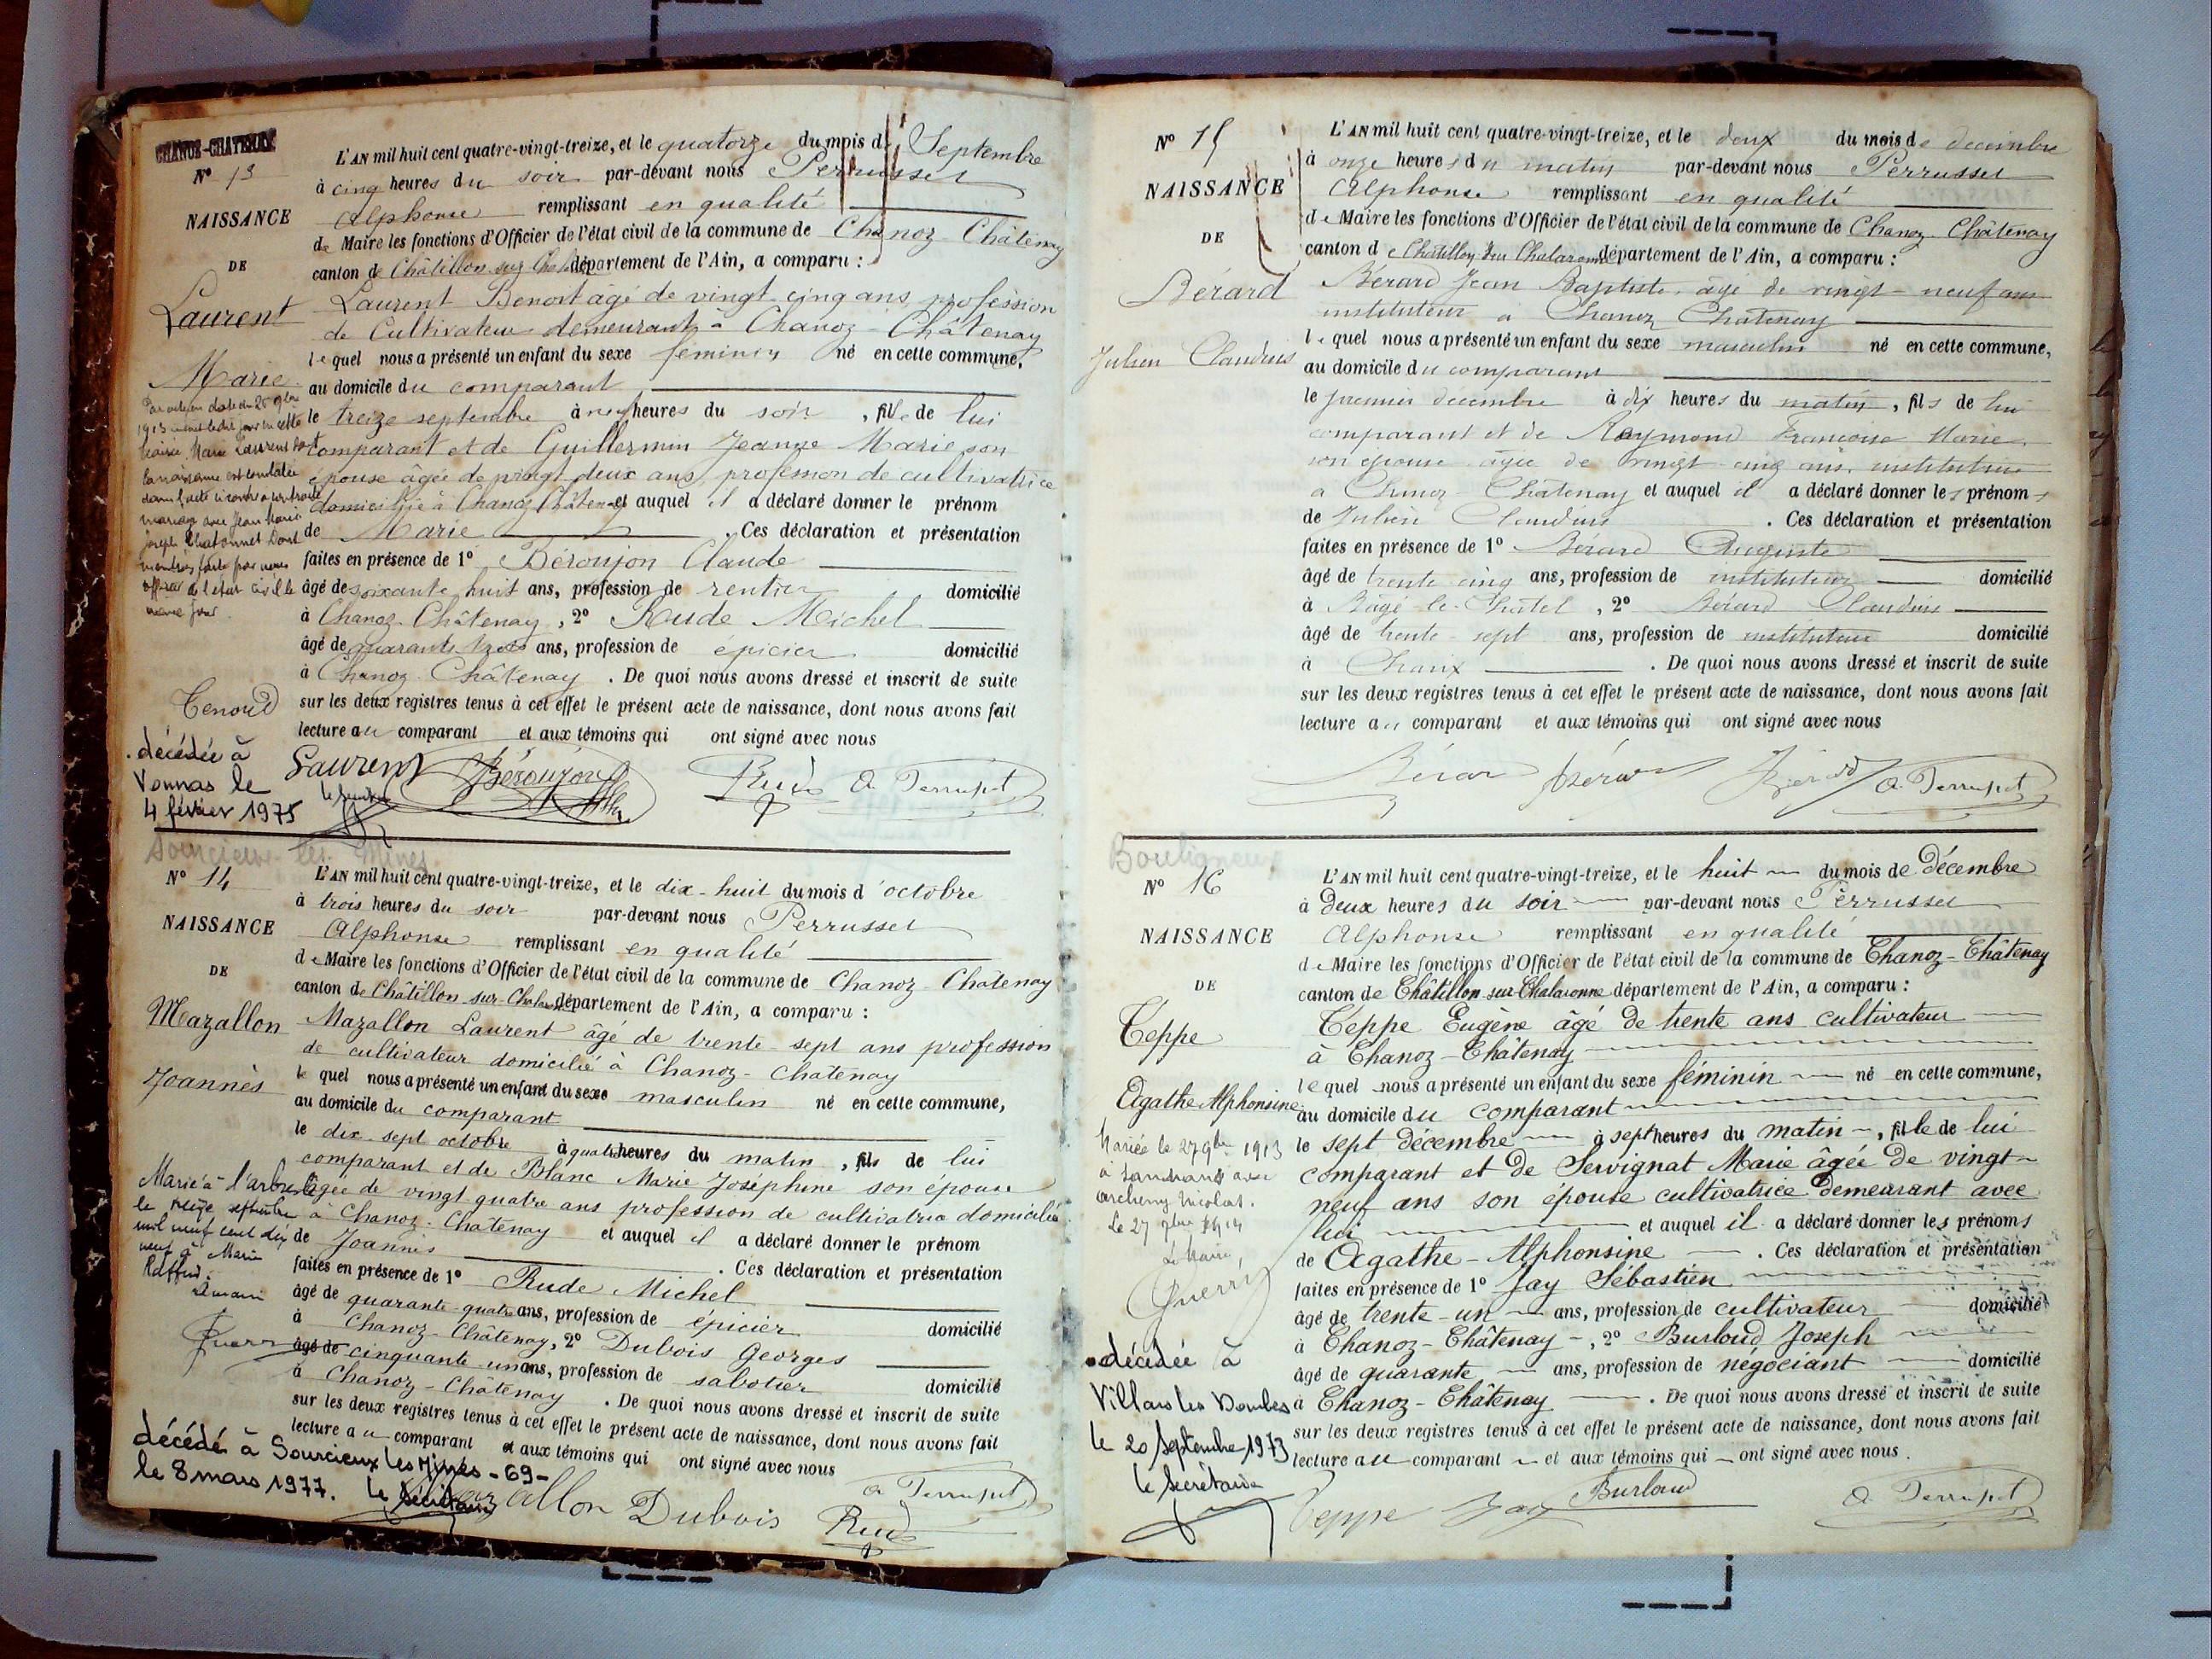 CHANOZ-CHATENAY
N° 13
NAISSANCE
DE
Laurent
Marie
L'AN mil huit cent quatre-vingt-treize, et le quatorze du mois de Septembre
à cinq heures du soir par-devant nous Perrusset
Alphonse remplissant en qualité
de Maire les fonctions d'Officier de l'état civil de la commune de Chanoz-Châtenay
canton de Châtillon sur département de l'Ain, a comparu :
Laurent Benoit âgé de vingt-cinq ans, profession
de Cultivateur demeurant à Chanoz-Châtenay
lequel nous a présenté un enfant du sexe féminin né en cette commune,
au domicile du comparant
le treize septembre à neuf heures du soir, fille de lui
comparant et de Guillermin Jeanne Marie son
épouse âgée de vingt deux ans, profession de cultivatrice
domiciliée à Chanoz Châtenay et auquel il a déclaré donner le prénom
de Marie. Ces déclaration et présentation
faites en présence de 1° Béroujon Claude
âgé de soixante huit ans, profession de rentier domicilié
à Chanoz-Châtenay, 2° Rude Michel
âgé de quarante trois ans, profession de épicier domicilié
à Chanoz-Châtenay. De quoi nous avons dressé et inscrit de suite
sur les deux registres tenus à cet effet le présent acte de naissance, dont nous avons fait
lecture au comparant et aux témoins qui ont signé avec nous
mariage avec Jean Marie
Joseph Chatonnet dont
mention faite par nous
officier de l'état civil le
même jour
Tenoud
décédée à
Vonnas le
4 février 1975
Laurent Béroujon Rude A. Perrusset
Sourcieux-les-Mines
N° 14
NAISSANCE
DE
Mazallon
Joannès
L'AN mil huit cent quatre-vingt-treize, et le dix-huit du mois d'octobre
à trois heures du soir par-devant nous Perrusset
Alphonse remplissant en qualité
de Maire les fonctions d'Officier de l'état civil de la commune de Chanoz-Chatenay
canton de Châtillon-sur- département de l'Ain, a comparu :
Mazallon Laurent âgé de trente-sept ans profession
de cultivateur domicilié à Chanoz-Chatenay
lequel nous a présenté un enfant du sexe masculin né en cette commune,
au domicile du comparant
le dix-sept octobre à quatre heures du matin, fils de lui
comparant et de Blanc Marie Joséphine son épouse
âgée de vingt-quatre ans profession de cultivatrice domiciliée
à Chanoz-Chatenay et auquel il a déclaré donner le prénom
de Joannès. Ces déclaration et présentation
faites en présence de 1° Rude Michel
âgé de quarante-quatre ans, profession de épicier domicilié
à Chanoz-Châtenay, 2° Dubois Georges
âgé de cinquante-un ans, profession de sabotier domicilié
à Chanoz-Châtenay. De quoi nous avons dressé et inscrit de suite
sur les deux registres tenus à cet effet le présent acte de naissance, dont nous avons fait
lecture au comparant et aux témoins qui ont signé avec nous
Marié à l'arbresle
le treize septembre
mil neuf cent dix
neuf à Marie
Le maire
décédé à Sourcieux les Mines -69-
le 8 mars 1977. Le Secrétaire
Mazallon Dubois Rude A. Perrusset
N° 15
NAISSANCE
DE
Bérard
Julien Claudius
L'AN mil huit cent quatre-vingt-treize, et le deux du mois de décembre
à onze heures du matin par-devant nous Perrusset
Alphonse remplissant en qualité
de Maire les fonctions d'Officier de l'état civil de la commune de Chanoz-Châtenay
canton de Châtillon sur Chalaronne département de l'Ain, a comparu :
Bérard Jean Baptiste, âgé de vingt-neuf ans
instituteur à Chanoz Chatenay
lequel nous a présenté un enfant du sexe masculin né en cette commune,
au domicile du comparant
le premier décembre à dix heures du matin, fils de lui
comparant et de Raymond Françoise Marie
son épouse âgée de vingt cinq ans, institutrice
à Chanoz-Châtenay et auquel il a déclaré donner les prénoms
de Julien Claudius. Ces déclaration et présentation
faites en présence de 1° Bérard Auguste
âgé de trente cinq ans, profession de instituteur domicilié
à Bâgé-le-Châtel, 2° Bérard Claudius
âgé de trente-sept ans, profession de instituteur domicilié
à. De quoi nous avons dressé et inscrit de suite
sur les deux registres tenus à cet effet le présent acte de naissance, dont nous avons fait
lecture au comparant et aux témoins qui ont signé avec nous
Bérard Bérard Bérard A. Perrusset
Bouligneux
N° 16
NAISSANCE
DE
Teppe
Agathe Alphonsine
L'AN mil huit cent quatre-vingt-treize, et le huit du mois de Décembre
à deux heures du soir par-devant nous Perrusset
Alphonse remplissant en qualité
de Maire les fonctions d'Officier de l'état civil de la commune de Chanoz-Châtenay
canton de Châtillon sur Chalaronne département de l'Ain, a comparu :
Teppe Eugène âgé de trente ans cultivateur
à Chanoz-Châtenay
lequel nous a présenté un enfant du sexe féminin né en cette commune,
au domicile du comparant
le sept décembre à sept heures du matin, fille de lui
comparant et de Servignat Marie âgée de vingt-
neuf ans son épouse cultivatrice demeurant avec
lui et auquel il a déclaré donner les prénoms
de Agathe-Alphonsine. Ces déclaration et présentation
faites en présence de 1° Jay Sébastien
âgé de trente-un ans, profession de cultivateur domicilié
à Chanoz-Châtenay, 2° Burloud Joseph
âgé de quarante ans, profession de négociant domicilié
à Chanoz-Châtenay. De quoi nous avons dressé et inscrit de suite
sur les deux registres tenus à cet effet le présent acte de naissance, dont nous avons fait
lecture au comparant et aux témoins qui ont signé avec nous.
Mariée le 27 9bre 1913
Nicolas.
Le 27 9bre
Le Maire,
décédée à
Villars les Dombes
le 20 septembre 1973
le Secrétaire
Teppe Jay Burloud A. Perrusset